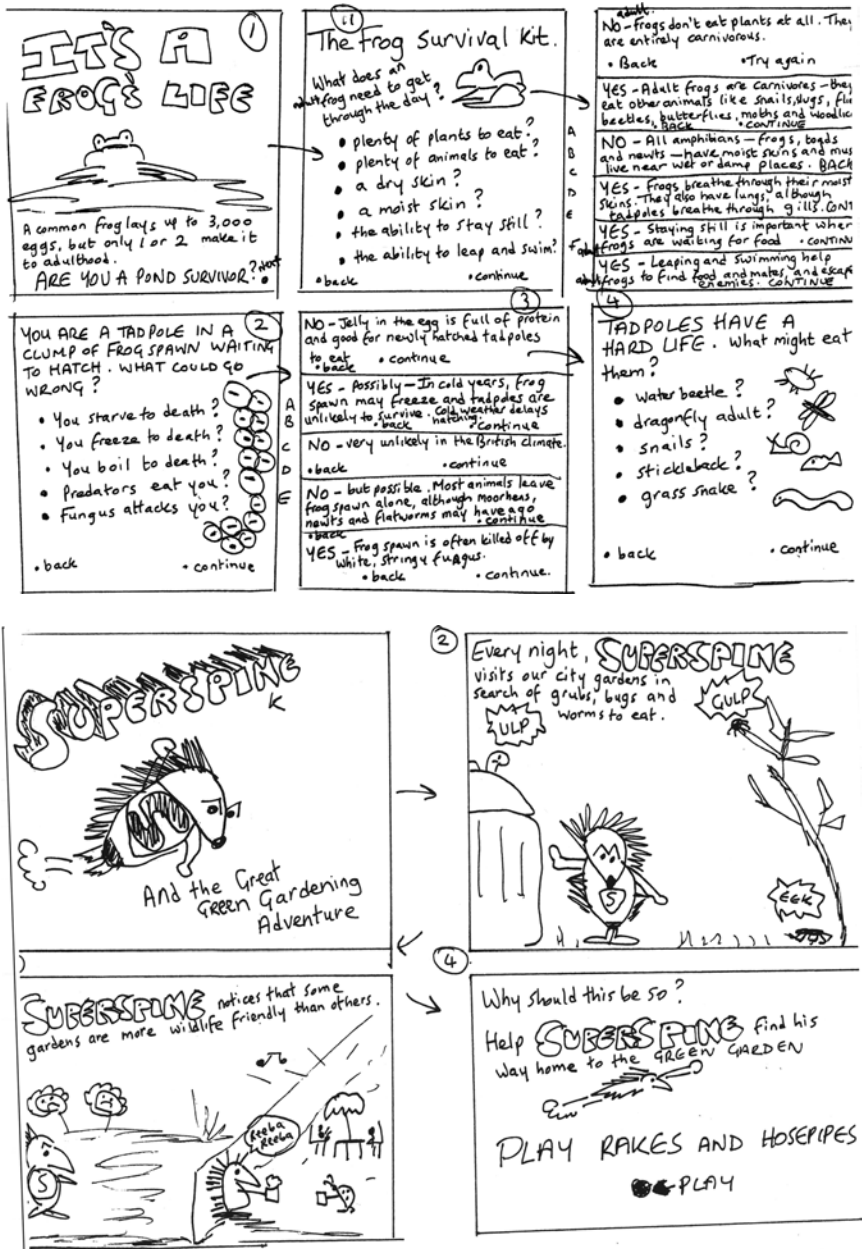 1
IT'S A
FROG'S LIFE
A common frog lays up to 3,000
eggs, but only 1 or 2 make it
to adulthood.
ARE YOU A POND SURVIVOR?
• Next
11
The frog survival kit.
What does an
adult frog need to get
through the day?
• plenty of plants to eat?
• plenty of animals to eat?
• a dry skin?
• a moist skin?
• the ability to stay still?
• the ability to leap and swim?
• back • continue
A
B
C
D
E
F
adult
NO - frogs don't eat plants at all. They
are entirely carnivorous.
• Back • Try again
YES - Adult frogs are carnivores - they
eat other animals like snails, slugs,
beetles, butterflies, moths and
• BACK • CONTINUE
NO - All amphibians - frogs, toads
and newts - have moist skins and
live near wet or damp places. BACK
YES - Frogs breathe through their moist
skins. They also have lungs, although
tadpoles breathe through gills. CONT
YES - Staying still is important when
adult frogs are waiting for food • CONTINU
YES - Leaping and swimming help
adult frogs to find food and mates, and escape
enemies. CONTINUE
2
YOU ARE A TADPOLE IN A
CLUMP OF FROG SPAWN WAITING
TO HATCH. WHAT COULD GO
WRONG?
• You starve to death?
• You freeze to death?
• You boil to death?
• Predators eat you?
• Fungus attacks you?
• back • continue
A
B
C
D
E
3
NO - Jelly in the egg is full of protein
and good for newly hatched tadpoles
to eat
• back • continue
YES - Possibly - In cold years, frog
spawn may freeze and tadpoles are
unlikely to survive. Cold weather delays
hatching.
• back • continue
NO - very unlikely in the British climate.
• back • continue
NO - but possible. Most animals leave
frog spawn alone, although Moorhens,
newts and flatworms may have a go
• back • continue
YES - Frog spawn is often killed off by
white, stringy fungus.
• back • continue.
4
TADPOLES HAVE A
HARD LIFE. What might eat
them?
• water beetle?
• dragonfly adult?
• snails?
• stickleback?
• grass snake?
• back • continue
SUPERSPINE
K
And the Great
GREEN Gardening
Adventure
2
Every night, SUPERSPINE
visits our city gardens in
search of grubs, bugs and
worms to eat.
ULP
GULP
EEK
S
SUPERSPINE notices that some
gardens are more wildlife friendly than others.
Reeba
Reeba
S
4
Why should this be so?
Help SUPERSPINE find his
way home to the GREEN GARDEN
PLAY RAKES AND HOSEPIPES
PLAY